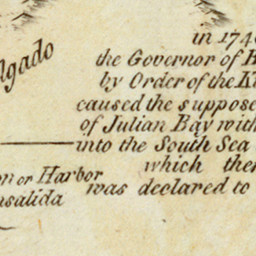 in 174
the Governor of
by Order of the K
caused the suppose
of Julian Bay with
into the South Sea
which the
was declared to
lgado
on or Harbor
nsalida